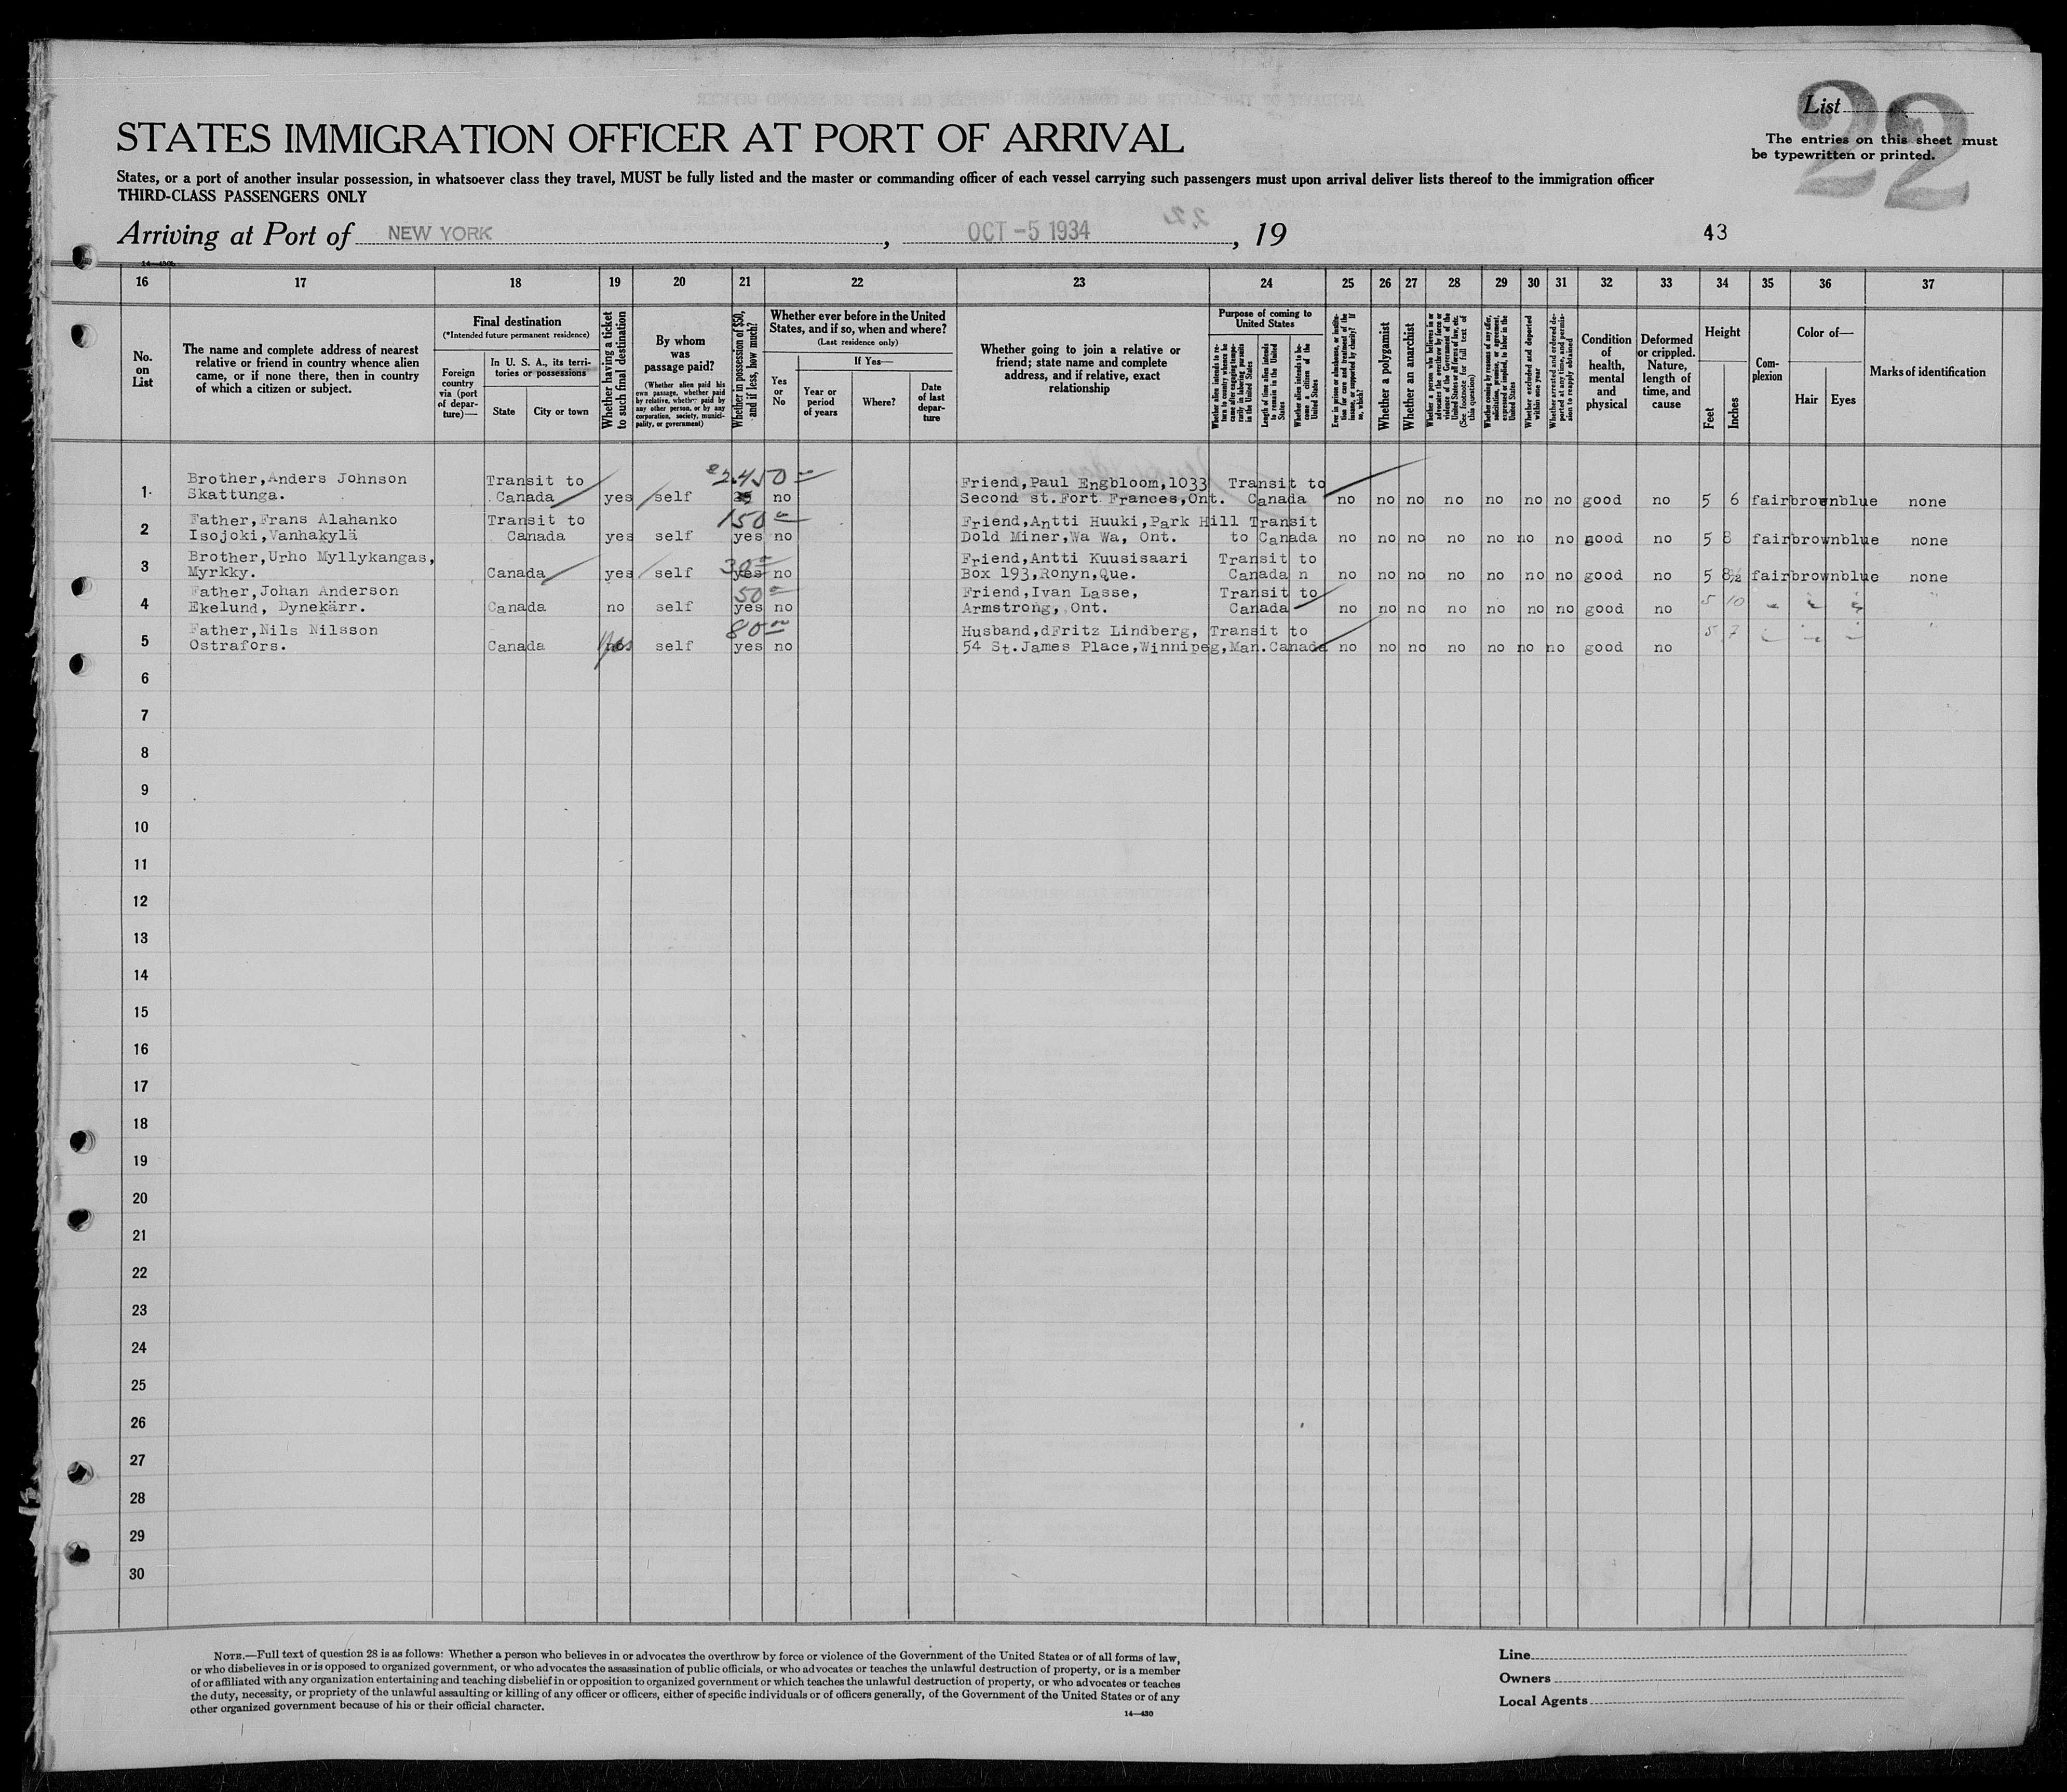 List
22
The entries on this sheet must
be typewritten or printed.
STATES IMMIGRATION OFFICER AT PORT OF ARRIVAL
States, or a port of another insular possession, in whatsoever class they travel, MUST be fully listed and the master or commanding officer of each vessel carrying such passengers must upon arrival deliver lists thereof to the immigration officer
THIRD-CLASS PASSENGERS ONLY
Arriving at Port of NEW YORK, OCT -5 1934, 19
43
16 17 18 19 20 21 22 23 24 25 26 27 28 29 30 31 32 33 34 35 36 37
No.
on
List
The name and complete address of nearest
relative or friend in country whence alien
came, or if none there, then in country
of which a citizen or subject.
Final destination
(*Intended future permanent residence)
Foreign
country
via (port
of depar-
ture)—
In U. S. A., its terri-
tories or possessions
State
City or town
Whether having a ticket
to such final destination
By whom
was
passage paid?
(Whether alien paid his
own passage, whether paid
by relative, whether paid by
any other person, or by any
corporation, society, munici-
pality, or government)
Whether in possession of $50,
and if less, how much?
Whether ever before in the United
States, and if so, when and where?
(Last residence only)
Yes
or
No
If Yes—
Year or
period
of years
Where?
Date
of last
depar-
ture
Whether going to join a relative or
friend; state name and complete
address, and if relative, exact
relationship
Purpose of coming to
United States
Length of time alien intends
to remain in the United
States
Whether alien intends to be-
come a citizen of the
United States
Whether a polygamist
Whether an anarchist
Whether excluded and deported
within one year
Condition
of
health,
mental
and
physical
Deformed
or crippled.
Nature,
length of
time, and
cause
Height
Feet
Inches
Com-
plexion
Color of—
Hair
Eyes
Marks of identification
1 Brother,Anders Johnson Transit to 2450 Friend,Paul Engbloom,1033 Transit to
Skattunga. Canada yes self no Second st.Fort Frances,Ont. Canada no no no no no no no good no 5 6 fair brown blue none
2 Father,Frans Alahanko Transit to 150 Friend,Antti Huuki,Park Hill Transit
Isojoki,Vanhakylä Canada yes self yes no Dold Miner,Wa Wa, Ont. to Canada no no no no no no no good no 5 8 fair brown blue none
3 Brother,Urho Myllykangas, Friend,Antti Kuusisaari Transit to
Myrkky. Canada yes self yes no Box 193,Ronyn,Que. Canada n no no no no no no no good no 5 8½ fair brown blue none
4 Father,Johan Anderson 50 Friend,Ivan Lasse, Transit to
Ekelund, Dynekärr. Canada no self yes no Armstrong, Ont. Canada no no no no no no no good no 5 10
5 Father,Nils Nilsson 80 Husband,dFritz Lindberg, Transit to
Ostrafors. Canada yes self yes no 54 St.James Place,Winnipeg,Man.Canada no no no no no no no good no 5 7
6
7
8
9
10
11
12
13
14
15
16
17
18
19
20
21
22
23
24
25
26
27
28
29
30
NOTE.—Full text of question 28 is as follows: Whether a person who believes in or advocates the overthrow by force or violence of the Government of the United States or of all forms of law,
or who disbelieves in or is opposed to organized government, or who advocates the assassination of public officials, or who advocates or teaches the unlawful destruction of property, or is a member
of or affiliated with any organization entertaining and teaching disbelief in or opposition to organized government or which teaches the unlawful destruction of property, or who advocates or teaches
the duty, necessity, or propriety of the unlawful assaulting or killing of any officer or officers, either of specific individuals or of officers generally, of the Government of the United States or of any
other organized government because of his or their official character.
14—430
Line
Owners
Local Agents